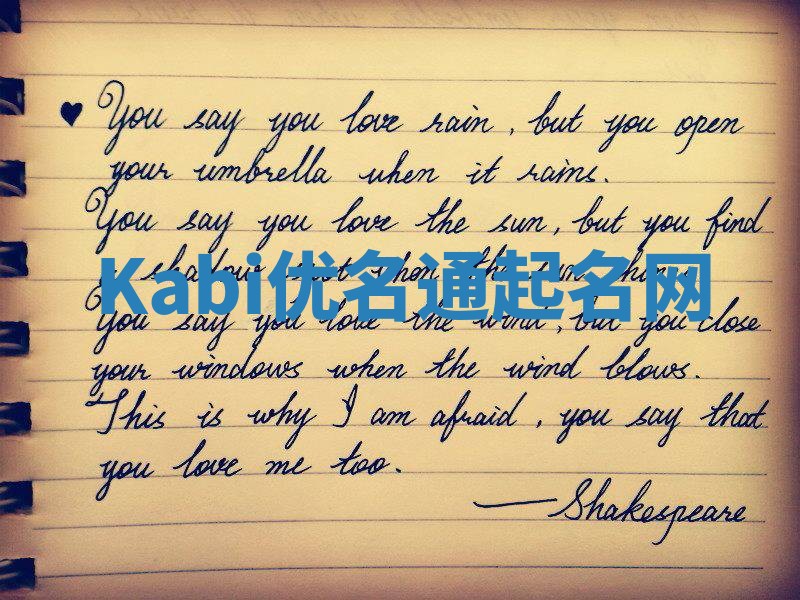 You say you love rain, but you open
your umbrella when it rains.
You say you love the sun, but you find
a shadow spot when the sun shines.
Kabi优名通起名网
You say you love the wind, but you close
your windows when the wind blows.
This is why I am afraid, you say that
you love me too.
—Shakespeare